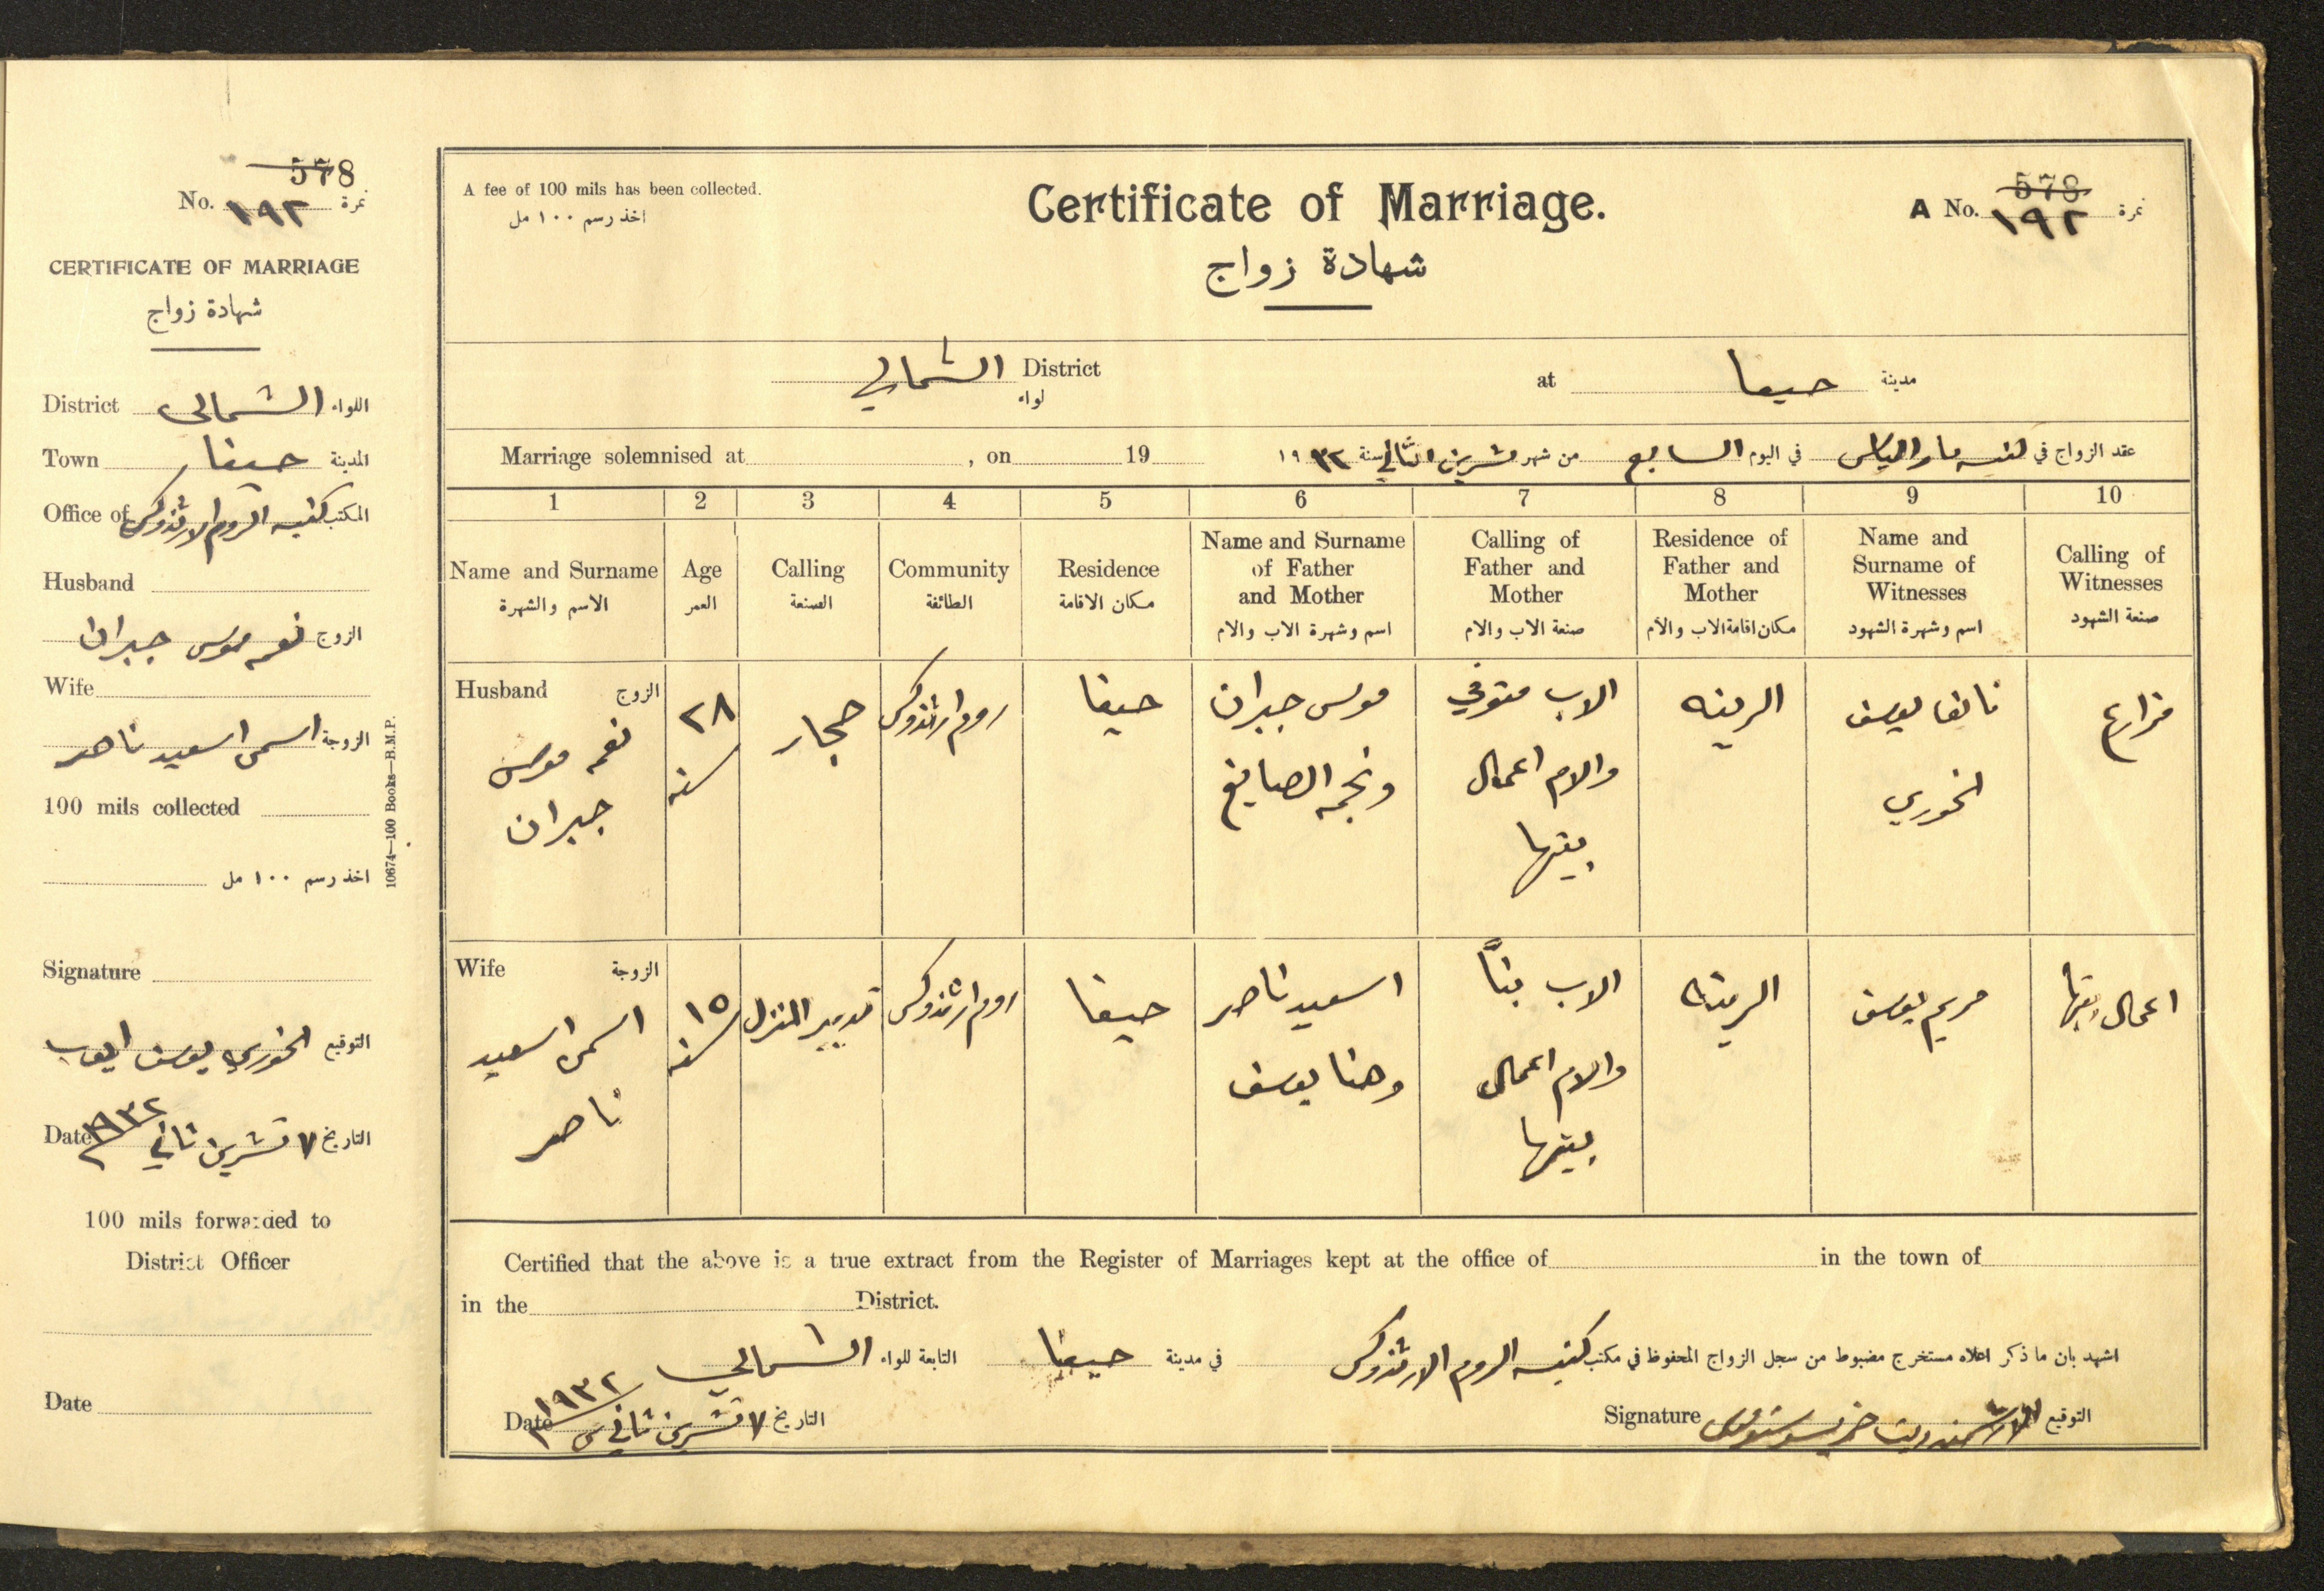 578
No. ١٩٢ نمرة
CERTIFICATE OF MARRIAGE
شهادة زواج
District الشمالي اللواء
Town حيفا المدينة
Office of كنيسة الروم الارثذوكس المكتب
Husband
الزوج نعمه موسى جبران
Wife
الزوجة اسمى اسعيد ناصر
100 mils collected
اخذ رسم ١٠٠ مل
Signature
التوقيع الخوري يوسف ايوب
Date ٧ تشرين ثاني ١٩٣٢ التاريخ
100 mils forwarded to
District Officer
Date
10674—100 Books—H.M.P.
A fee of 100 mils has been collected.
اخذ رسم ١٠٠ مل
Certificate of Marriage.
شهادة زواج
578
A No. ١٩٢ نمرة
الشمالي District
لواء
at حيفا مدينة
Marriage solemnised at , on 19
عقد الزواج في كنيسة مار الياس في اليوم السابع من شهر تشرين الثاني سنة ١٩٣٢
1 2 3 4 5 6 7 8 9 10
Name and Surname
الاسم والشهرة
Age
العمر
Calling
الصنعة
Community
الطائفة
Residence
مكان الاقامة
Name and Surname
of Father
and Mother
اسم وشهرة الاب والام
Calling of
Father and
Mother
صنعة الاب والام
Residence of
Father and
Mother
مكان اقامة الاب والام
Name and
Surname of
Witnesses
اسم وشهرة الشهود
Calling of
Witnesses
صنعة الشهود
Husband الزوج
نعمه موسى
جبران
٢٨
سنه
حجار
روم ارثذوكس
حيفا
موسى جبران
ونجمه الصايغ
الاب متوفي
والام اعمال
بيتها
الرينه
نايف يوسف
الخوري
مزارع
Wife الزوجة
اسمى اسعيد
ناصر
١٥
سنه
تدبير المنزل
روم ارثذوكس
حيفا
اسعيد ناصر
وهنا يوسف
الاب بنّا
والام اعمال
بيتها
الرينه
مريم يوسف
اعمال بيتها
Certified that the above is a true extract from the Register of Marriages kept at the office of in the town of
in the District.
اشهد بان ما ذكر اعلاه مستخرج مضبوط من سجل الزواج المحفوظ في مكتب كنيسة الروم الارثذوكس في مدينة حيفا التابعة للواء الشمالي
Date ٧ تشرين ثاني ١٩٣٢ التاريخ
Signature التوقيع